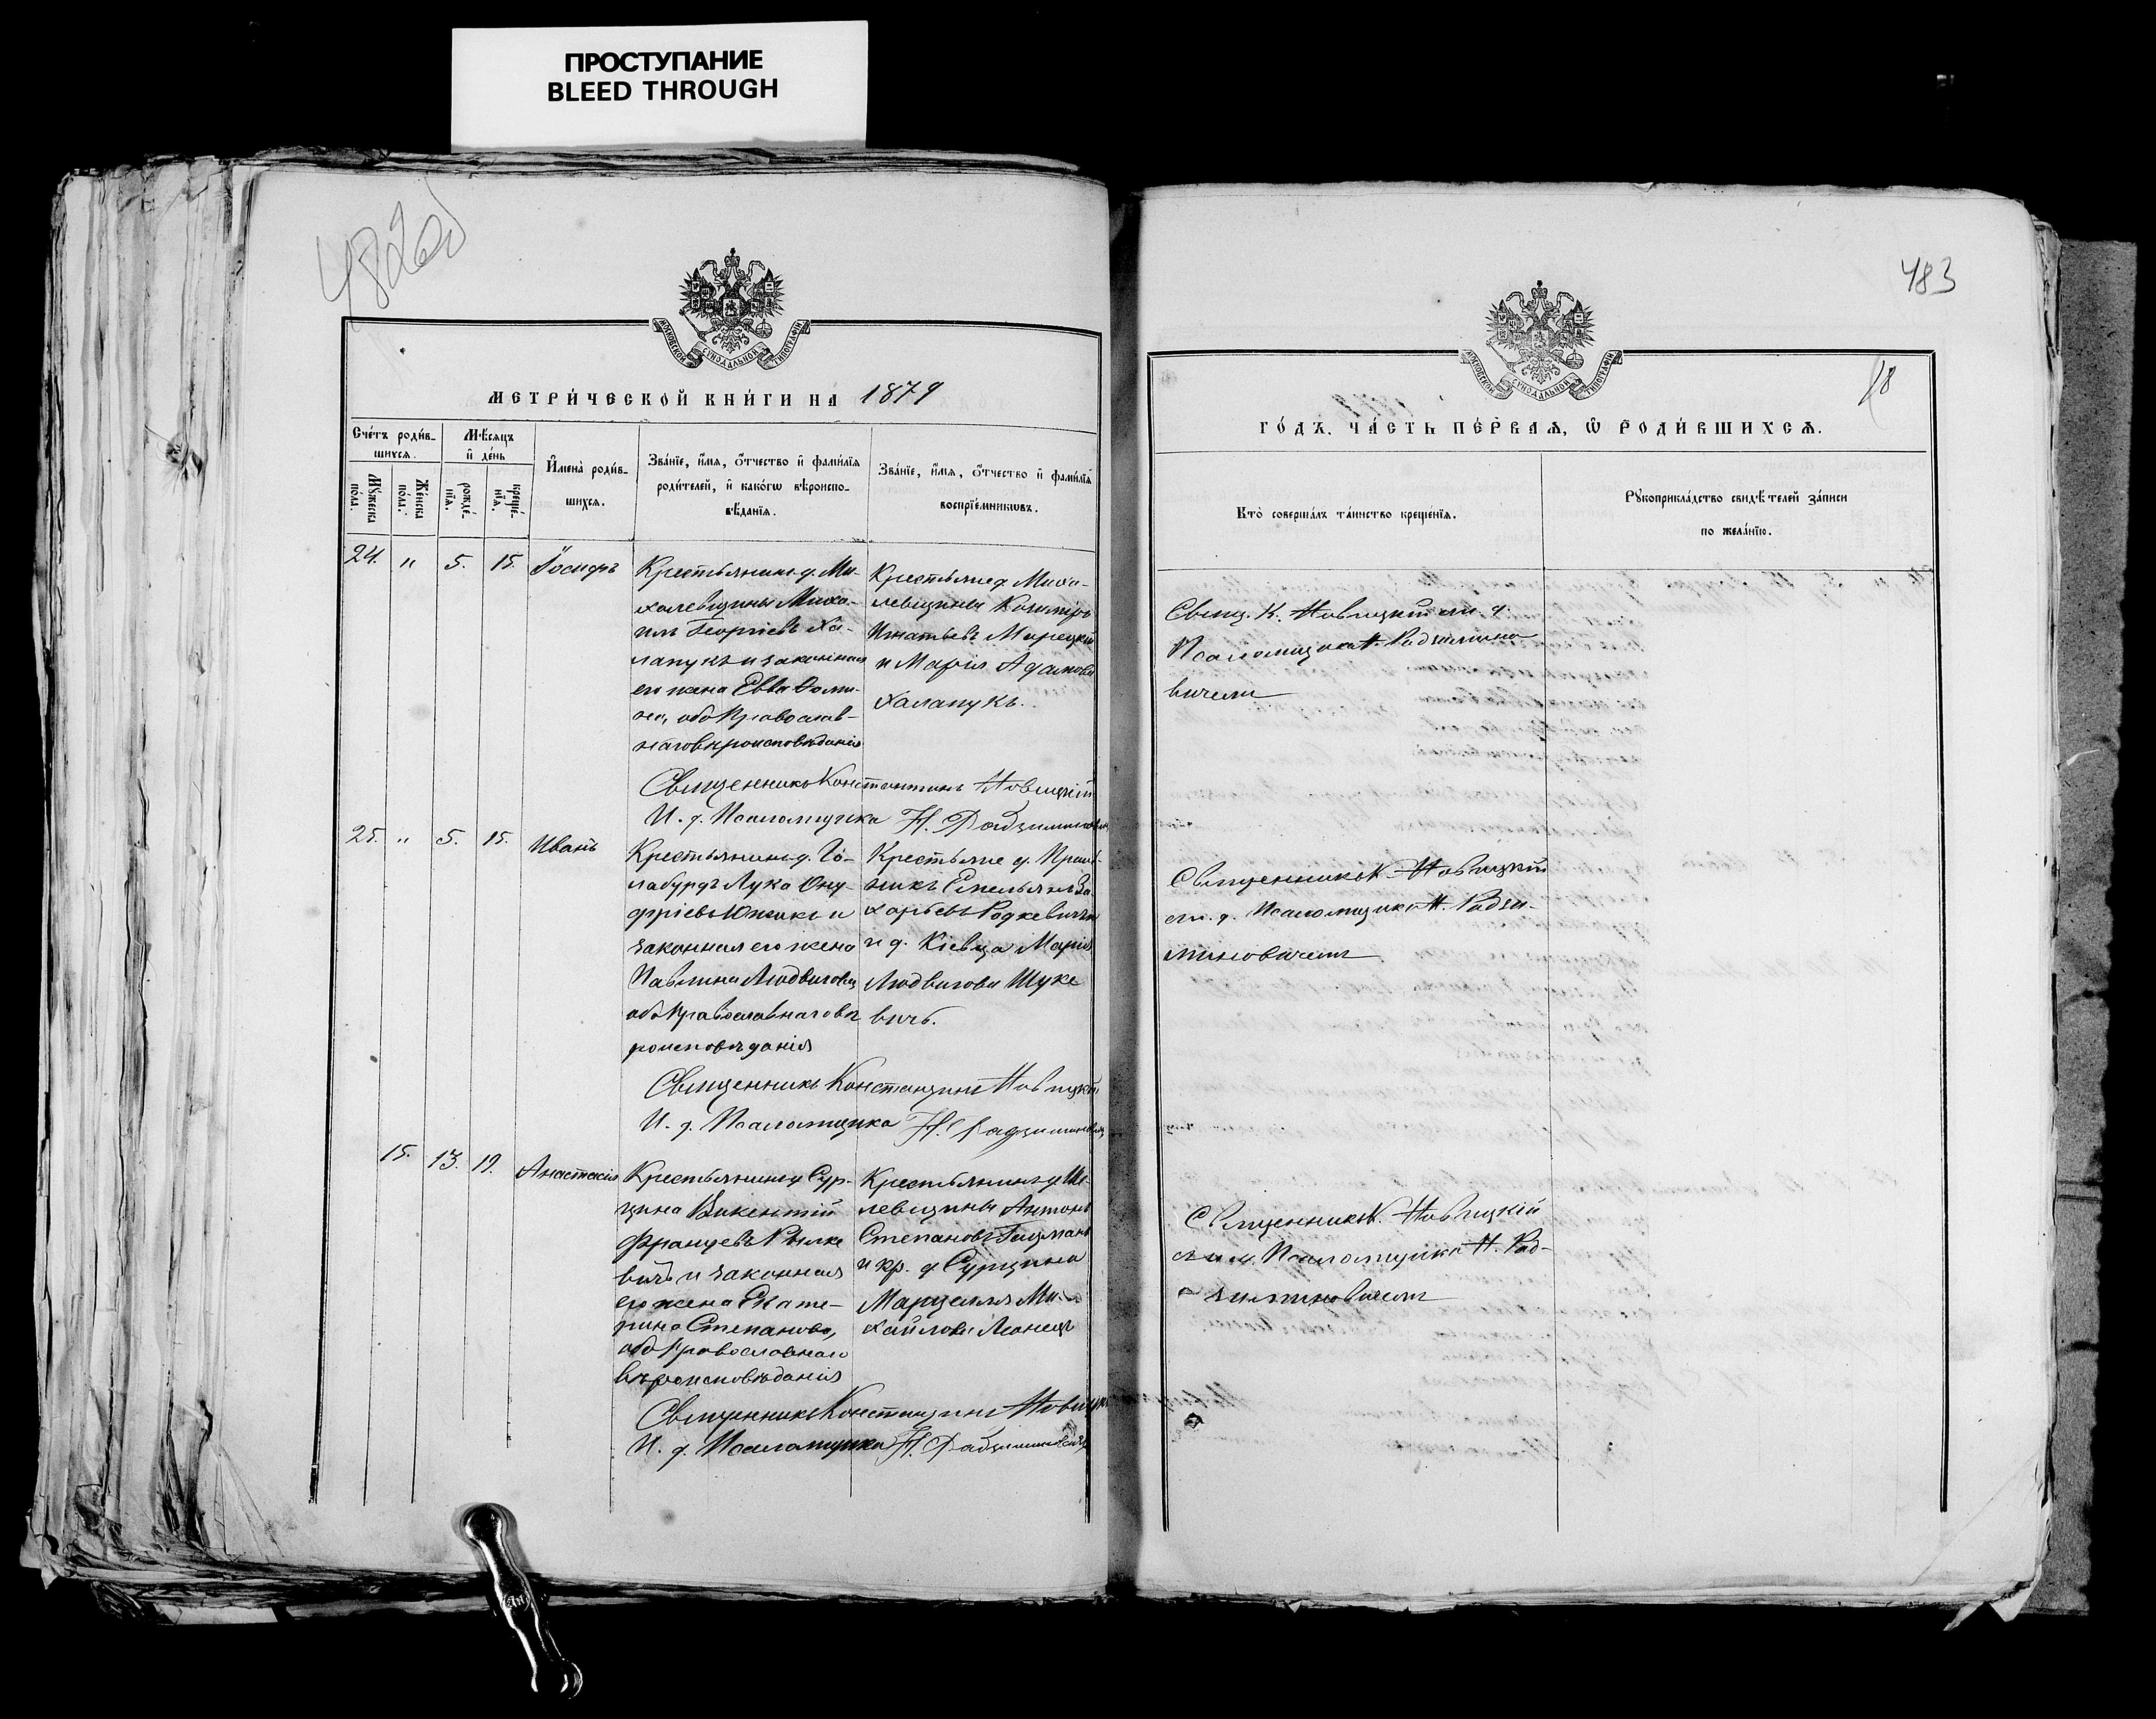 ПРОСТУПАНИЕ
BLEED THROUGH
482об
483
МОСКОВСКОЙ СУНОДАЛЬНОЙ ТИПОГРАФІИ
МЕТРИ́ЧЕСКОЙ КНИ́ГИ НА 1879
Сче́тъ роди́в-
шихся.
Мѣ́сяцъ
и҆ де́нь
Му́жеска
по́ла.
Же́нска
по́ла.
рожде́-
нїя.
креще́-
нїя.
И҆мена̀ роди́в-
шихся.
Зва́нїе, и҆́мя, ѻ҆́тчество и҆ фами́лїя
роди́телей, и҆ како́гѡ вѣроиспо-
вѣ́данїя.
Зва́нїе, и҆́мя, ѻ҆́тчество и҆ фами́лїя
воспрїе́мникѡвъ.
24. " 5. 15. Іосифъ
Крестьянинъ д. Ми-
халевщины Миха-
илъ Георгіевъ Ха-
лапукъ и законная
его жена Евва
оба Православ-
наго вѣроисповѣданія
Крестьяне д. Миха-
левщины Казимиръ
Игнатьевъ Мирецкій
и Марія Адамова
Халапукъ.
Священникъ Константинъ Новицкій
И. д. Псаломщика Н. Радзиминовичъ
25. " 5. 15. Иванъ
Крестьянинъ д. Го-
лабурдъ Лука Ону-
фріевъ Южикъ и
законная его жена
Павлина Людвигова
оба Православнаго вѣ-
роисповѣданія
Крестьяне д.
Емельянъ За-
харьевъ Родкевичъ
и д. Кіевца Марія
Людвигова Шуке
вичъ.
Священникъ Констанцинъ Новицкій
И. д. Псаломщика Н. Радзиминовичъ
15. 13. 19. Анастасія
Крестьянинъ д. Сур-
щина Викентій
Францевъ Рылке
вичъ и законная
его жена Екате-
рина Степанова,
оба Православнаго
вѣроисповѣданія
Крестьянинъ д.
левщины Антонъ
Степановъ
и кр. д. Сурщина
Марцелля Ми-
хайлова Леонецъ
Священникъ Констанцинъ Новицкій
И. д. Псаломщика Н. Радзиминовичъ
МОСКОВСКОЙ СУНОДАЛЬНОЙ ТИПОГРАФІИ
ГО́ДЪ. ЧА́СТЬ ПЕ́РВАЯ, Ѡ҆ РОДИ́ВШИХСЯ.
Кто̀ соверша́лъ та́инство креще́нїя.
Рꙋкоприкла́дство свидѣ́телей за́писи
по жела́нїю.
Свящ. К. Новицкій съ и. д.
Псаломщика Н. Радзимино
вичемъ
Священникъ К. Новицкій
съ и. д. Псаломщика Н. Радзи-
миновичемъ
Священникъ К. Новицкій
съ и. д. Псаломщика Н. Рад-
зиминовичемъ